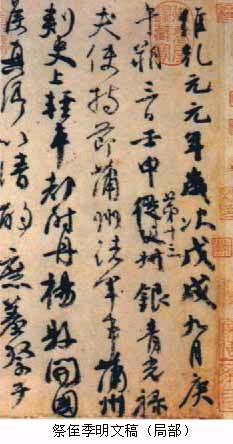 維乾元元年歲次戊戌九月庚
午朔三日壬申從父叔銀青光祿
第十三
夫使持節蒲州諸軍事蒲州
刺史上輕車都尉丹楊縣開國
侯真卿以清酌庶羞祭于
祭侄季明文稿（局部）